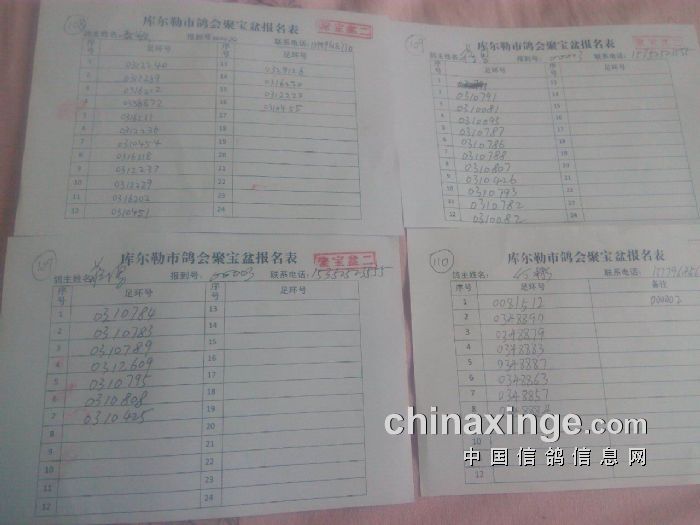 108
库尔勒市鸽会聚宝盆报名表
聚宝盆二
鸽主姓名:
报到号:
联系电话:
序号 足环号 序号 足环号
1 0312240 13
2 14
3 0316212 15 0316220
4 16 0312222
5 17 0310455
6 0312236 18
7 0310454 19
8 0316218 20
9 0312237 21
10 0312239 22
11 0316202 23
12 0310451 24
109
库尔勒市鸽会聚宝盆报名表
聚宝盆二
鸽主姓名:
报到号: 00003
联系电话: 15352523555
序号 足环号 序号 足环号
1 13
2 0310791 14
3 0310081 15
4 0310093 16
5 0310787 17
6 0310786 18
7 0310788 19
8 0310807 20
9 0310426 21
10 0310793 22
11 0310782 23
12 0310082 24
109
库尔勒市鸽会聚宝盆报名表
聚宝盆二
鸽主姓名:
报到号: 00003
联系电话: 15352523555
序号 足环号 序号 足环号
1 0310784 13
2 0310783 14
3 0310789 15
4 0312609 16
5 0310795 17
6 0310808 18
7 0310425 19
8 20
9 21
10 22
11 23
12 24
110
库尔勒市鸽会聚宝盆报名表
鸽主姓名:
联系电话:
序号 足环号 备注
1 0081512 000002
2 0348890
3 0348879
4 0348883
5 0348887
6 0348863
7 0348857
8
9
10
11
12
chinaxinge.com
中国信鸽信息网